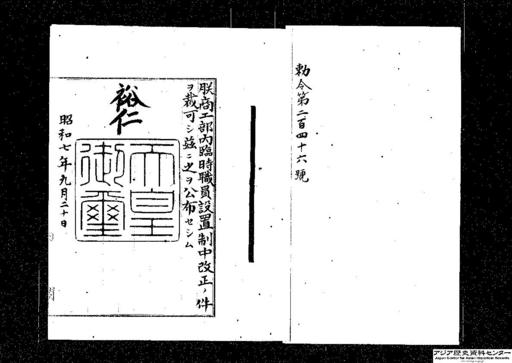 勅令第二百四十六號
朕商工部內臨時職員設置制中改正ノ件
ヲ裁可シ茲ニ之ヲ公布セシム
裕仁
天皇
御璽
昭和七年九月二十日
アジア歴史資料センター
Japan Center for Asian Historical Records